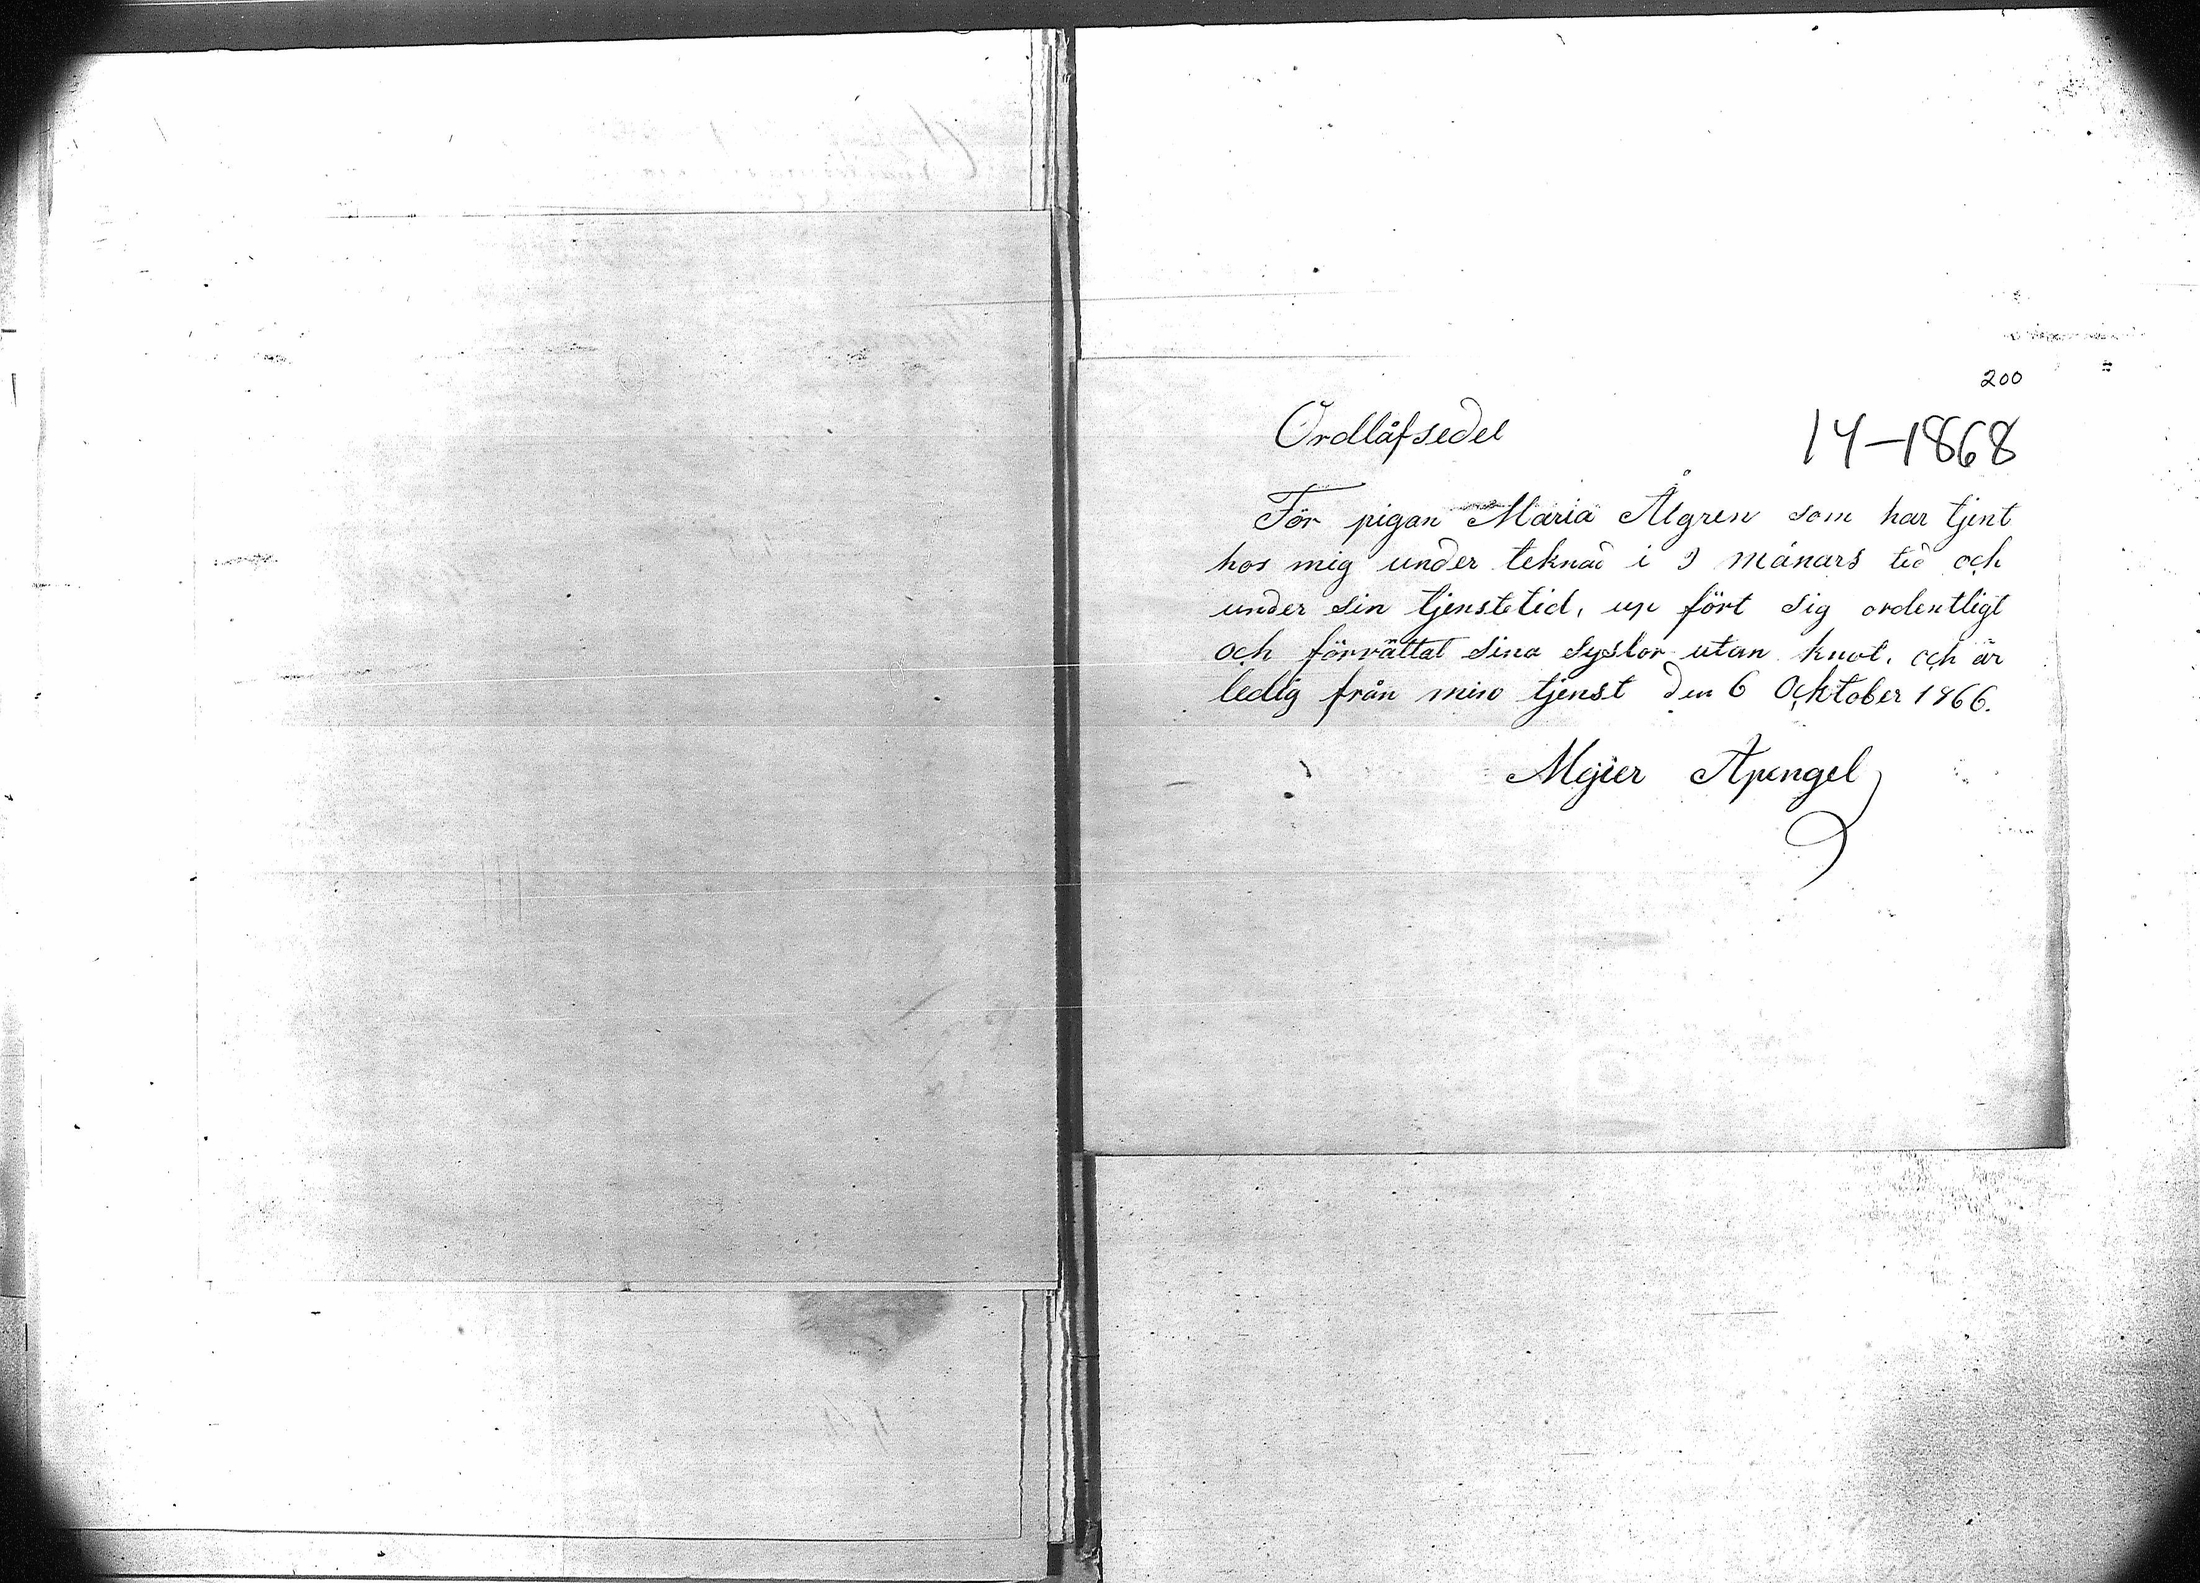 200
Ordlåfsedel
14-1868
För pigan Maria Ålgren som har tjent
hos mig under teknad i 9 månars tid och
under sin tjenstetid, up fört sig ordentligt
och förrättat sina syslor utan knot, och är
ledig från min tjenst den 6 Ocktober 1866.
Mejer Apengel